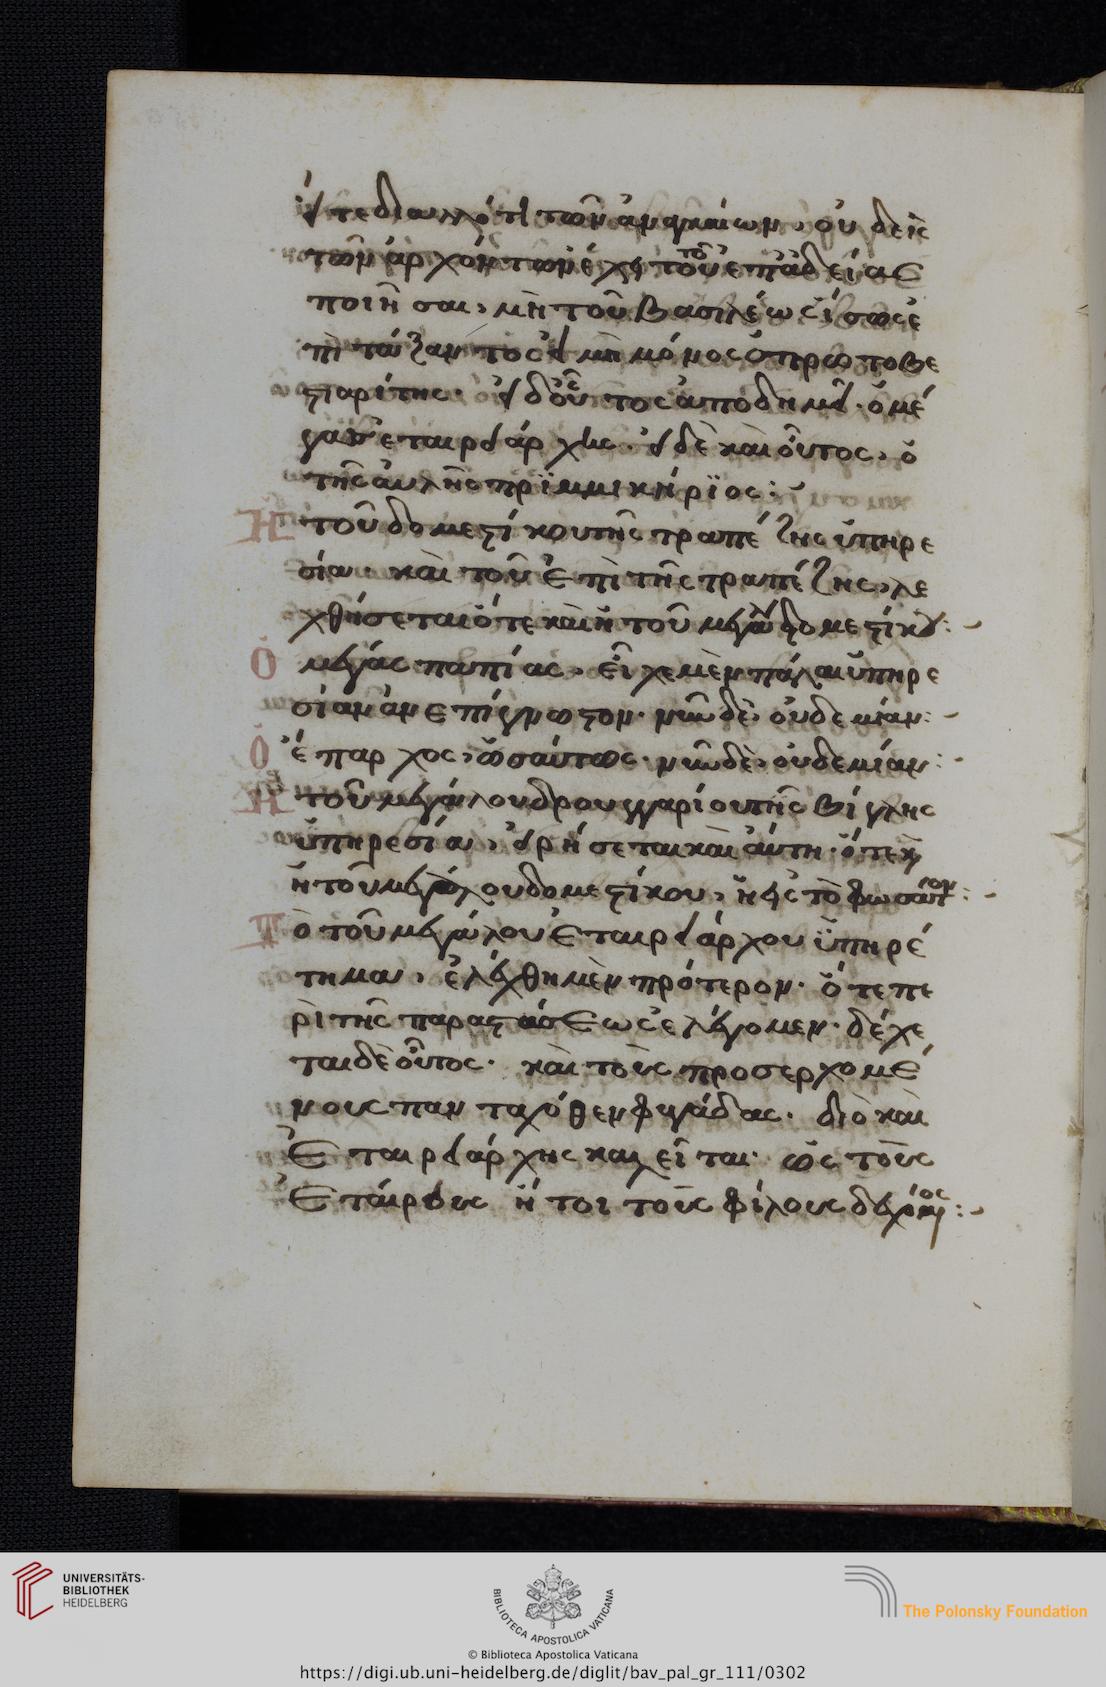 εἴτε διὰ ἄλλό τι τῶν ἀναγκαίων, οὐδεὶς
τῶν ἀρχόντων ἔχει τοῦτο ἐπ' ἀδείας
ποιῆσαι, μὴ τοῦ βασιλέως ἴσως ἐ
πιτάξαντος εἰ μὴ μόνος ὁ πρωτοβε
στιαρίτης. εἰ δ' οὖν τος ἀποδημεῖ. ὁ μέ
γας ἑταιρειάρχης. εἰ δὲ καὶ οὗτος, ὁ
τῆς αὐλῆς πριμμικήριος:
Ἡ τοῦ δομεστίκου τῆς τραπέζης ὑπηρε
σία. καὶ τοῦ ἐπὶ τῆς τραπέζης, λε
χθήσεται ὅτε καὶ ἡ τοῦ μεγάλου δομεστίκου:
Ὁ μέγας παπίας, εἶχε μὲν πάλαι ὑπηρε
σίαν ἀνεπίγνωστον. νῦν δὲ οὐδεμίαν:
Ὁ ἔπαρχος, ὡσαύτως. νῦν δὲ οὐδεμίαν:
Ἡ τοῦ μεγάλου δρουγγαρίου τῆς βίγλης
ὑπηρεσία, εἰρήσεται καὶ αὐτη. ὅτε καὶ
ἡ τοῦ μεγάλου δομεστίκου, ἡ εἰς τὸ φωσάτον:
Τὸ τοῦ μεγάλου ἑταιρειάρχου ὑπηρέ
τημα, ἐλέχθη μὲν πρότερον. ὅτε πε
ρὶ τῆς παραστάσεως ἐλέγομεν. δέχε
ται δὲ οὗτος. καὶ τοὺς προσερχομέ
νους πανταχόθεν φυγάδας. διὸ καὶ
ἑταιρειάρχης καλεῖται. ὡς τοὺς
ἑταίρους ἤτοι τοὺς φίλους δεχόμενος:
UNIVERSITÄTS-
BIBLIOTHEK
HEIDELBERG
BIBLIOTECA APOSTOLICA VATICANA
The Polonsky Foundation
© Biblioteca Apostolica Vaticana
https://digi.ub.uni-heidelberg.de/diglit/bav_pal_gr_111/0302